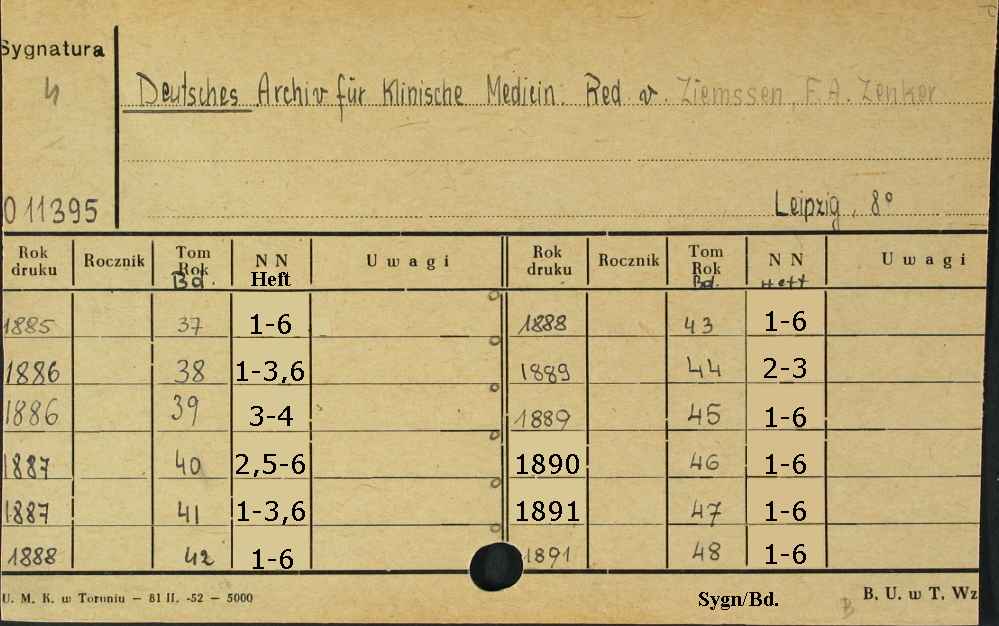 Sygnatura
4
Deutsches Archiv für Klinische Medicin. Red v. Ziemssen, F.A. Zenker
011395
Leipzig, 8°
Rok druku Rocznik Tom Rok Bd. NN Heft Uwagi Rok druku Rocznik Tom Rok Bd. NN Heft Uwagi
1885 37 1-6 1888 43 1-6
1886 38 1-3,6 1889 44 2-3
1886 39 3-4 1889 45 1-6
1887 40 2,5-6 1890 46 1-6
1887 41 1-3,6 1891 47 1-6
1888 42 1-6 1891 48 1-6
U. M. K. w Toruniu – 81 II. -52 – 5000 Sygn/Bd. B B. U. w T. Wz